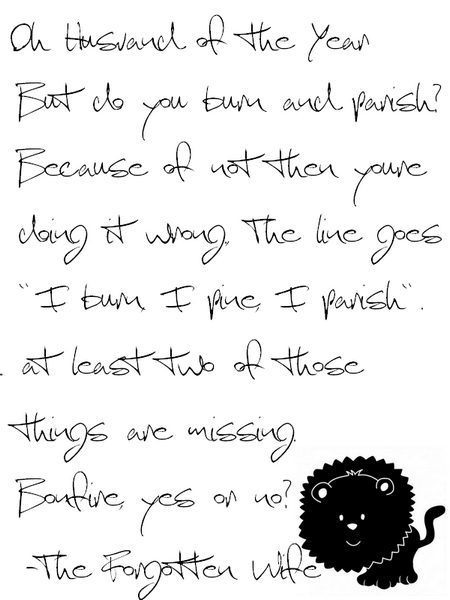 Oh Husvand of the Year
But do you burn and parish?
Because of not then youre
doing it wrong. The line goes
"I burn, I pine, I parish".
. at least two of those
things are missing.
Bonfire, yes or no?
-The Forgotten Wife